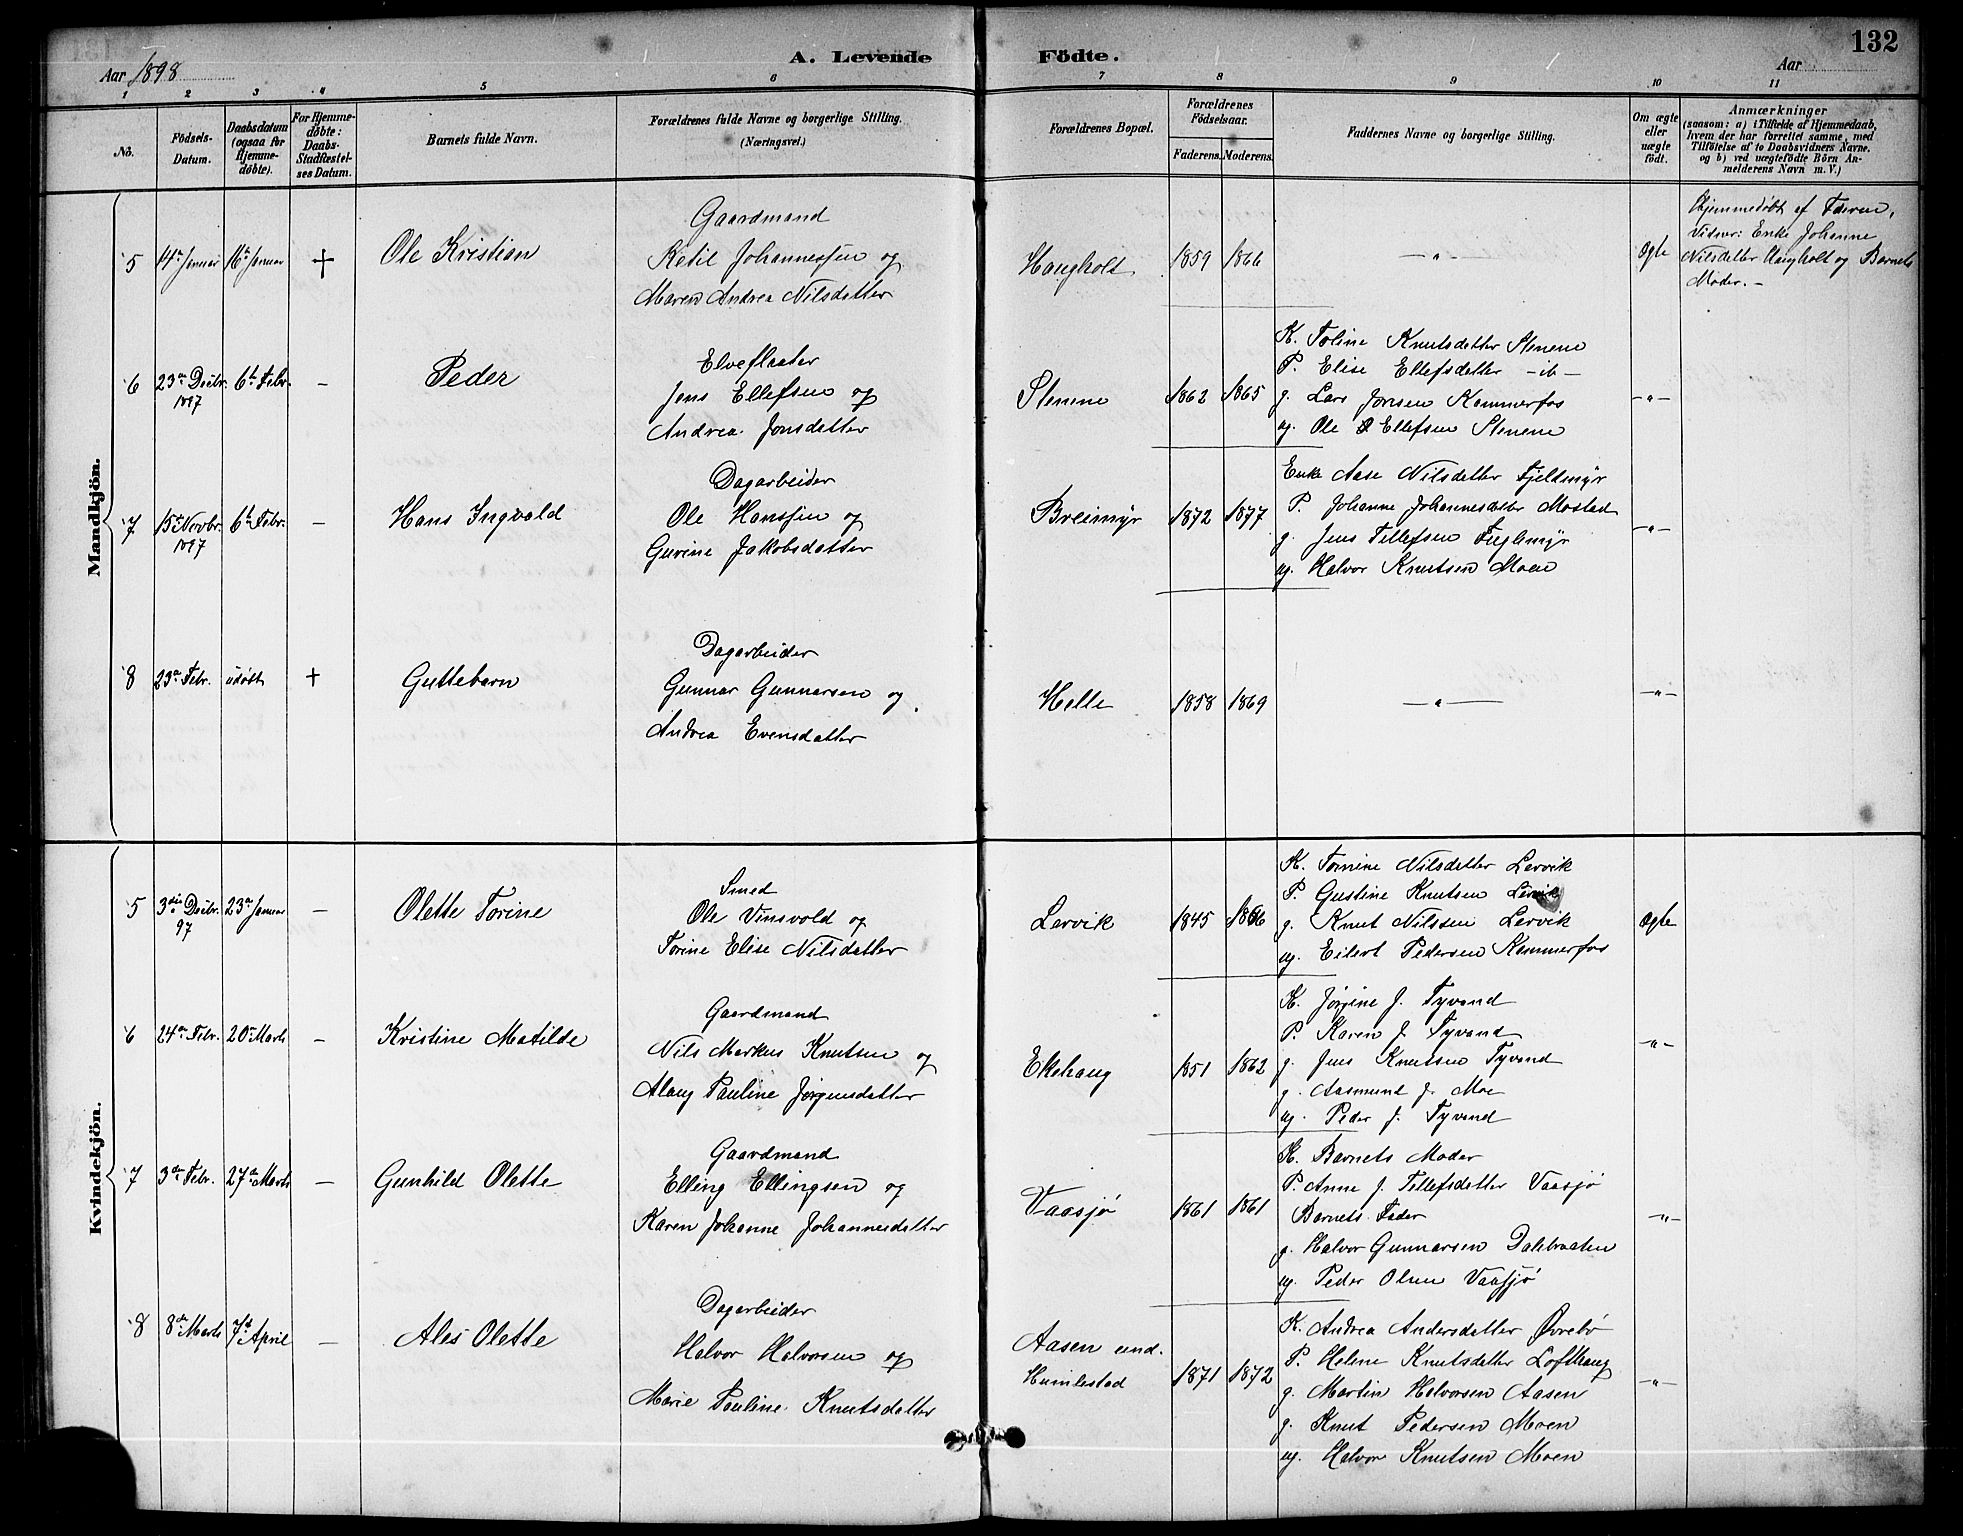 132
A. Levende Födte.
Aar 1898
Aar
1 2 3 4 5 6 7 8 9 10 11
No.
Födsels-Datum.
Daabsdatum (ogsaa for Hjemme-døbte).
For Hjemme-døbte: Daabs-Stadfæstel-ses Datum.
Barnets fulde Navn.
Forældrenes fulde Navne og borgerlige Stilling.
(Næringsvei.)
Forældrenes Bopæl.
Forældrenes Fødselsaar.
Faderens. Moderens.
Faddernes Navne og borgerlige Stilling.
Om ægte eller uægte födt.
Anmærkninger
(saasom: a) i Tilfælde af Hjemmedaab,
hvem der har forrettet samme, med
Tilföielse af to Daabsvidners Navne,
og b) ved uægtefödte Börn An-
melderens Navn m. V.)
Mandkjön.
5 14de Januar 16de Januar + Ole Kristian
Gaardmand
Ketil Johannessen og
Maren Andrea Nilsdatter
Haugholt 1859 1866 —"— Ægte
Hjemmedøbt af Faderen,
Vidner: Enke Johanne
Nilsdatter Haugholt og Barnets
Moder. —
6 23de Decbr. 1897 6te Febr. — Peder
Elveflaater
Jens Ellefsen og
Andrea Jonsdatter
Stenene 1862 1865
K. Toline Knutsdatter Stenene
P. Elise Ellefsdatter — ib —
g. Lars Jonsen Kammerfos
ug. Ole Ellefsen Stenene
—"—
7 15de Novbr. 1897 6te Febr. — Hans Ingvald
Dagarbeider
Ole Hanssen og
Gurine Jakobsdatter
Breimyr 1872 1877
Enke Aase Nilsdatter Fjeldmyr
P. Johanne Johannesdatter Mostad
g. Jens Tellefsen Fuglemyr
ug. Halvor Knutsen Moen
—"—
8 23de Febr. udøbt + Guttebarn
Dagarbeider
Gunnar Gunnarsen og
Andrea Evensdatter
Helle 1858 1869 —"— —"—
Kvindekjön.
5 3die Decbr. 97 23de Januar — Olette Torine
Smed
Ole Vinsvold og
Torine Elise Nilsdatter
Lervik 1845 1866
K. Tomine Nilsdatter Lervik
P. Gustine Knutsen Lervik
g. Knut Nilssen Lervik
ug. Eilert Pedersen Kammerfos
Ægte
6 24de Febr. 20de Marts — Kristine Matilde
Gaardmand
Nils Markus Knutsen og
Alaug Pauline Jørgensdatter
Ekehaug 1851 1862
K. Jørgine J. Tyvand
P. Karen J. Tyvand
g. Jens Knutsen Tyvand
g. Aasmund J. Moe
ug. Peder J. Tyvand
—"—
7 3die Febr. 27de Marts — Gunhild Olette
Gaardmand
Elling Ellingsen og
Karen Johanne Johannesdatter
Vaasjø 1861 1861
K. Barnets Moder
P. Anne J. Tellefsdatter Vaasjø
Barnets Fader
g. Halvor Gunnarsen Dalebraaten
ug. Peder Olsen Vaasjø
—"—
8 8de Marts 7de April — Ales Olette
Dagarbeider
Halvor Halvorsen og
Marie Pauline Knutsdatter
Aasen und.
Humlestad 1871 1872
K. Andrea Andersdatter Øvrebø
P. Helene Knutsdatter Lofthaug
g. Martin Halvorsen Aasen
g. Knut Pedersen Moen
ug. Halvor Knutsen Moen
—"—